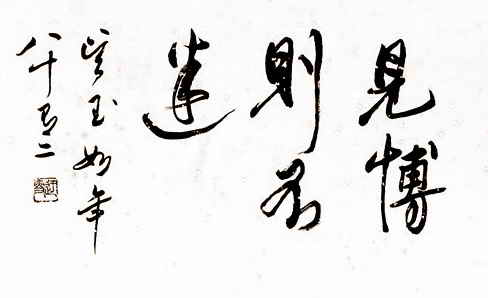 見博
則不
迷
吳玉如年
八十有二